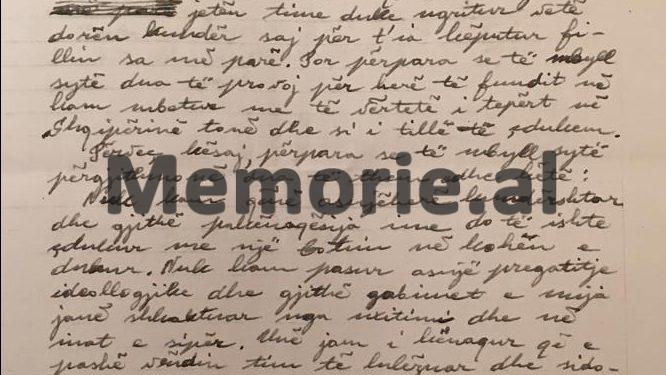 jetën time duke ngritur vetë
dorën kundër saj për t'ia këputur fi-
llin sa më parë. Por përpara se të mbyll
sytë dua të provoj për herë të fundit në
kam mbetur me të vërtetë i tepërt në
Shqipërinë tonë dhe si i tillë të çdukem.
Përveç kësaj, përpara se të mbyll sytë
Memorie.al
Nuk kam qënë asnjëherë kundërshtar
dhe gjithë pakënaqësia ime do të ishte
çdukur me një botim në kohën e
duhur. Nuk kam pasur asnjë pregatitje
ideollogjike dhe gjithë gabimet e mija
janë shkaktuar nga nxitimi dhe në
inat e sipër. Unë jam i kënaqur që e
pashë vëndin tim të lulëzuar dhe sido-